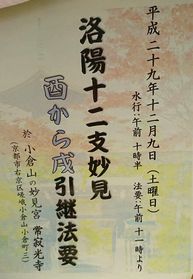 平成二十九年十二月九日（土曜日）
水行:午前 十時半 法要:午前 十一時より
洛陽十二支妙見
酉から戌引継法要
於 小倉山の妙見宮 常寂光寺
（京都市右京区嵯峨小倉山小倉町三）